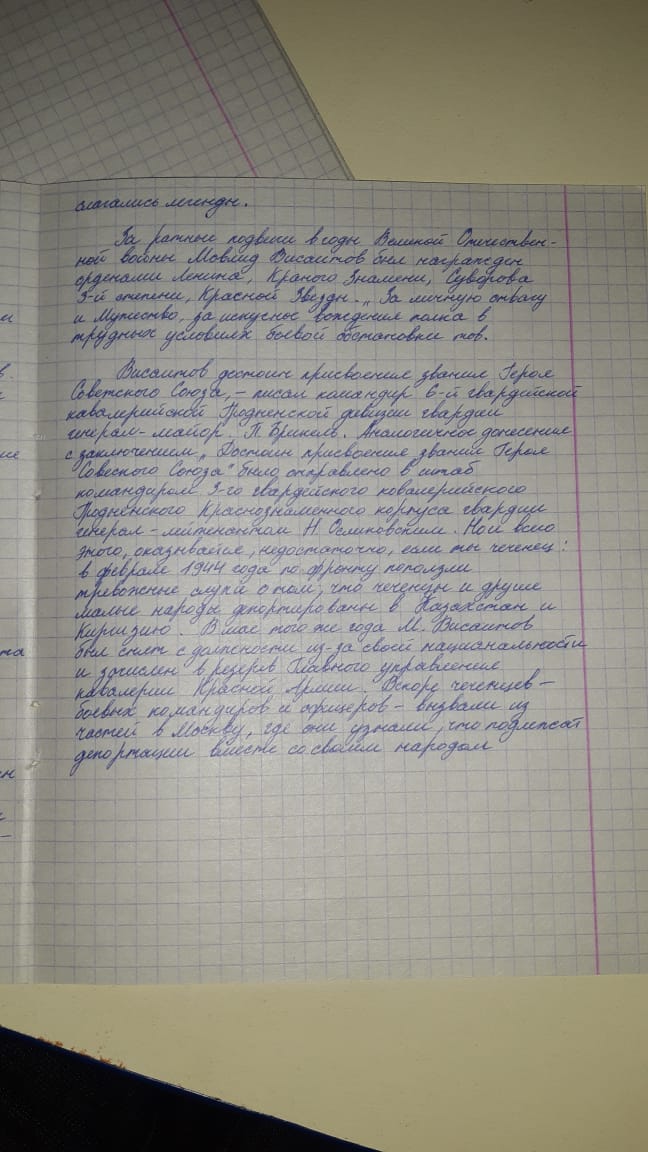 слагались легенды.
За ратные подвиги в годы Великой Отечествен-
ной войны Мовлид Висаитов был награжден
орденами Ленина, Краного Знамени, Суворова
3-й степени, Красной Звезды. „За личную отвагу
и Мужество, за искусное вождения полка в
трудных условиях боевой обстановки тов.
Висаитов достоин присвоения звания Героя
Советского Союза, – писал командир 6-й гвардейской
кавалерийской Гродненской дивизии гвардии
генерал-майор П. Брикель. Аналогичное донесение
с заключением „Достоин присвоения звания Героя
Совеского Союза" было отправлено в штаб
командиром 3-го гвардейского ковалерийского
Гродненского Краснознаменного корпуса гвардии
генерал-лейтенантом Н. Осликовским. Но и всего
этого, оказывается, недостаточно, если ты чеченец:
в феврале 1944 года по фронту поползли
тревожные слухи о том, что чеченцы и другие
малые народы депортированы в Казахстан и
Киргизию. В мае того же года М. Висаитов
был снят с должности из-за своей национальности
и зачислен в резерв Главного управления
кавалерии Красной Армии. Вскоре чеченцев –
боевых командиров и офицеров – вызвали из
частей в Москву, где они узнали, что подлежат
депортации вместе со своим народом
та